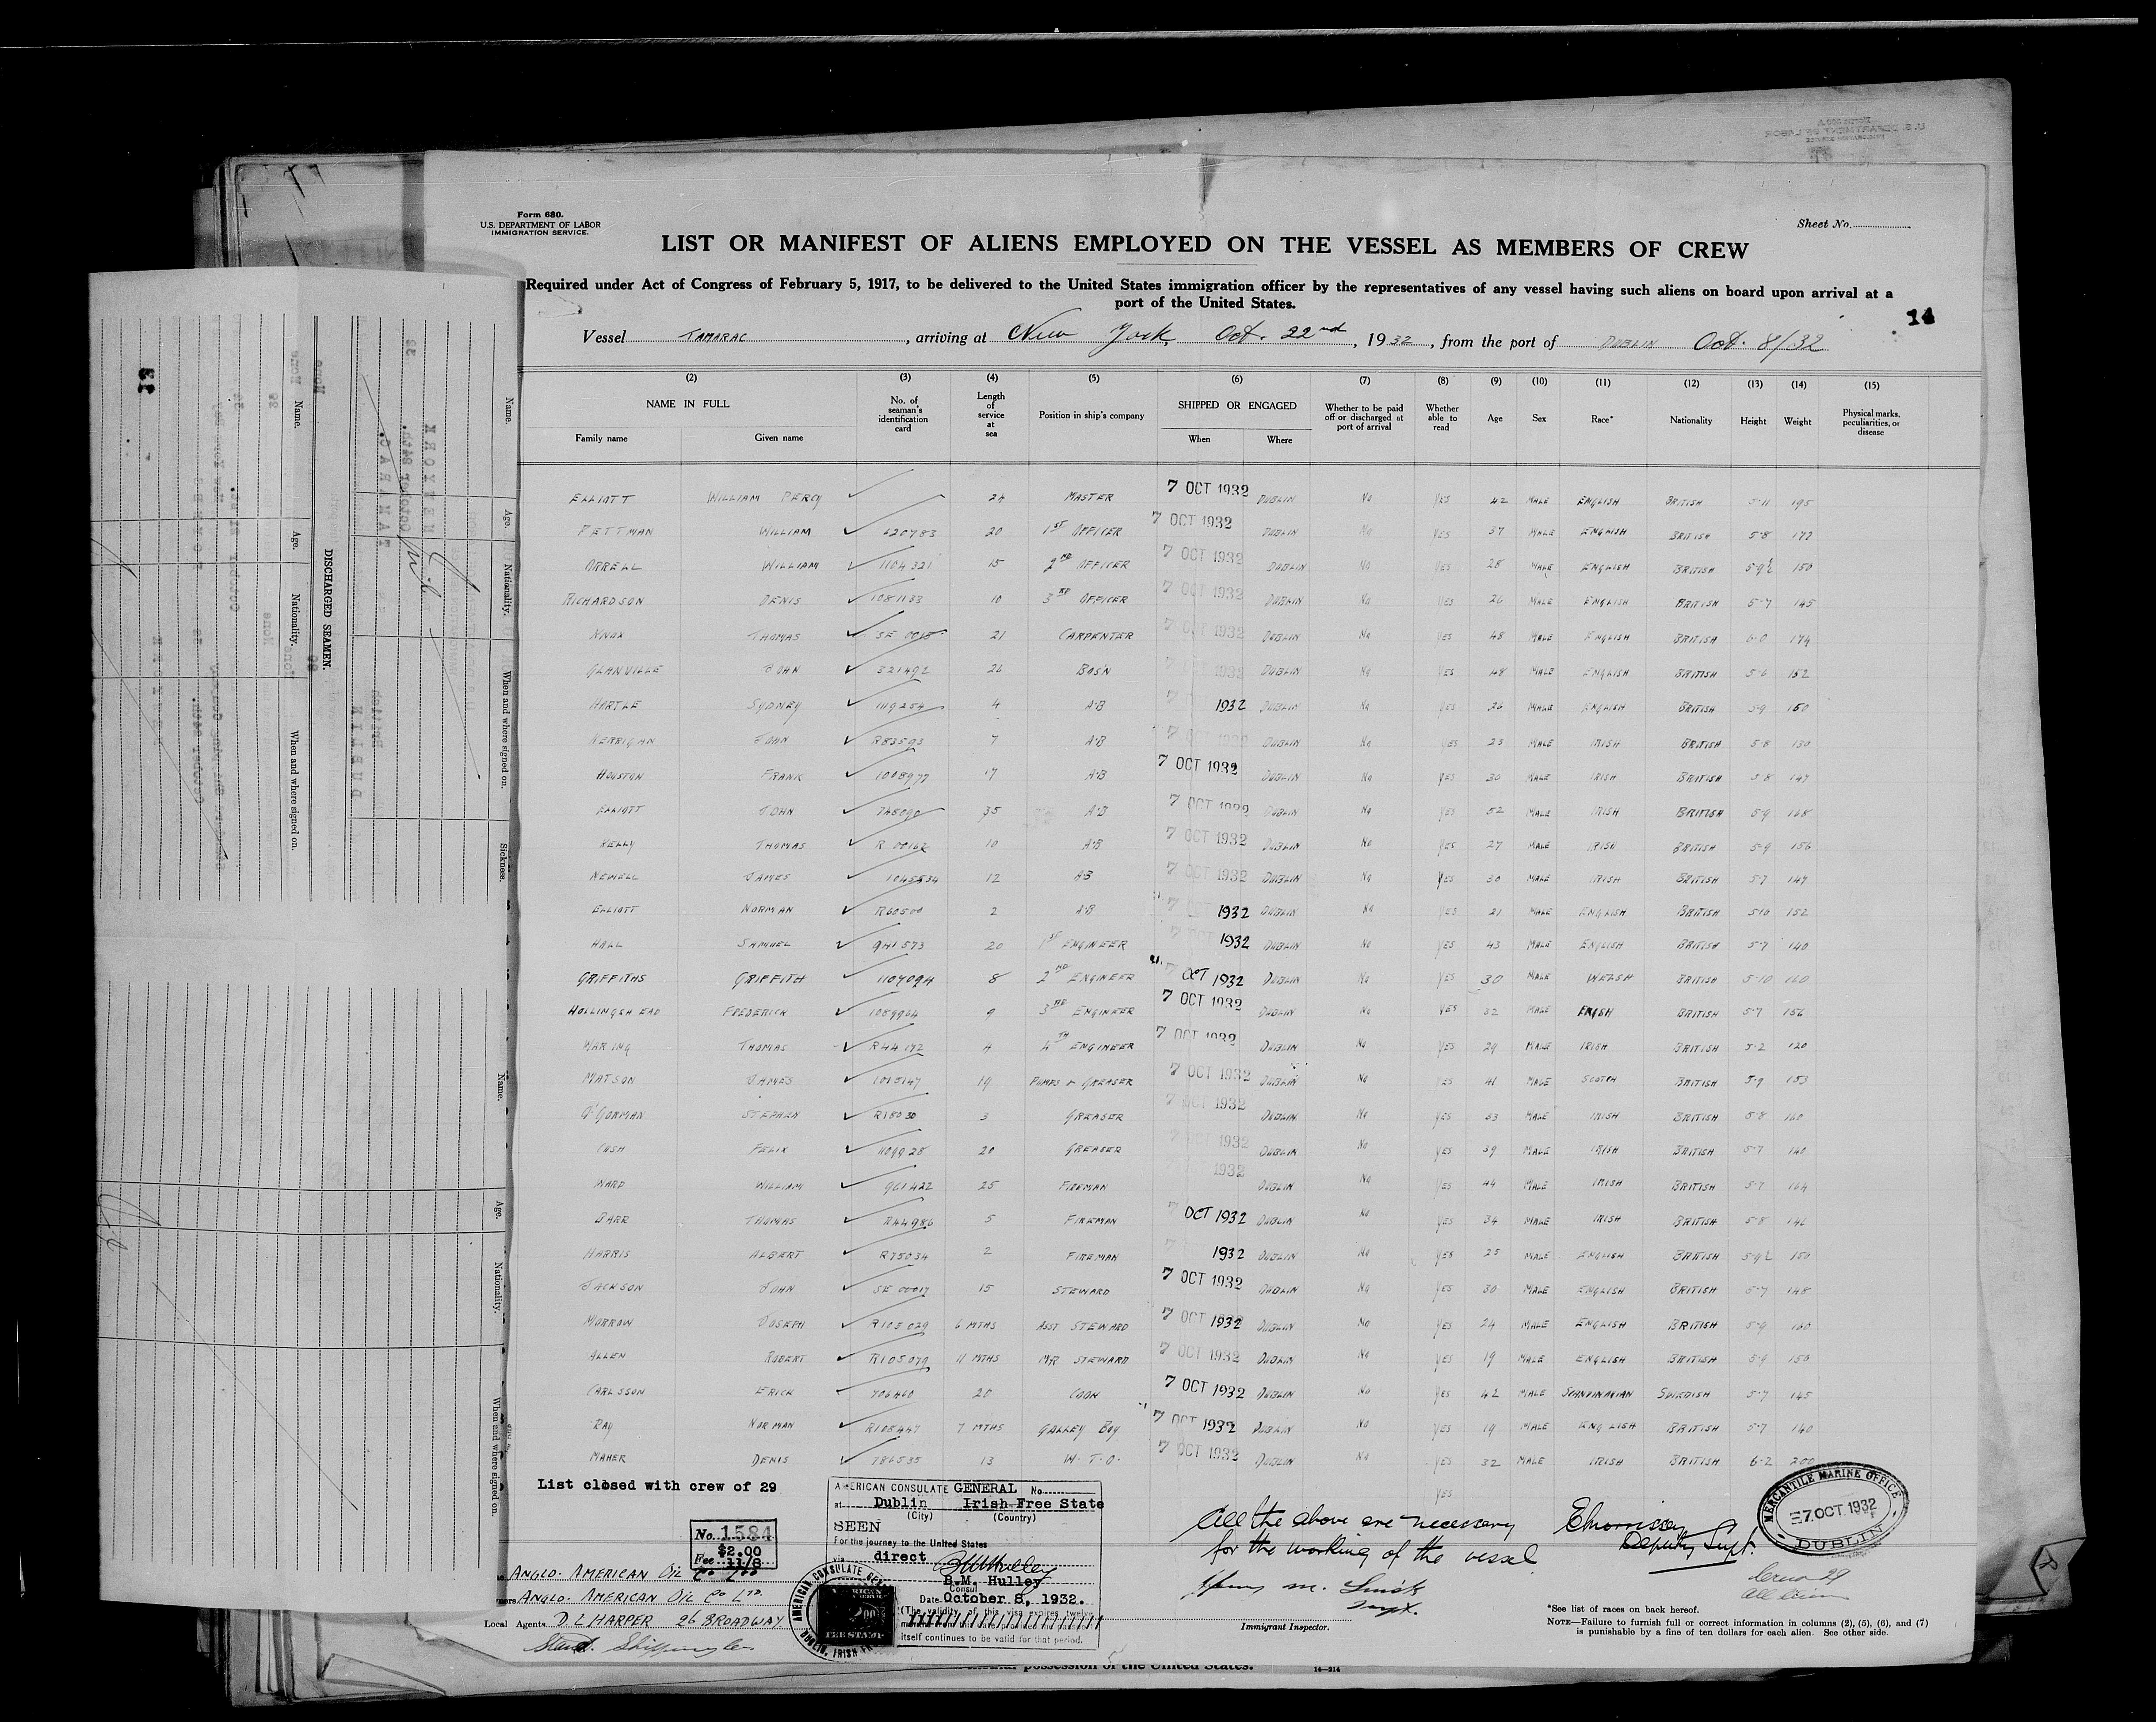 Form 680.
U.S. DEPARTMENT OF LABOR
IMMIGRATION SERVICE.
Sheet No.
LIST OR MANIFEST OF ALIENS EMPLOYED ON THE VESSEL AS MEMBERS OF CREW
Required under Act of Congress of February 5, 1917, to be delivered to the United States immigration officer by the representatives of any vessel having such aliens on board upon arrival at a
port of the United States.
14
Vessel TAMARAC, arriving at New York, Oct. 22nd, 1932, from the port of DUBLIN Oct. 8/32
(2) (3) (4) (5) (6) (7) (8) (9) (10) (11) (12) (13) (14) (15)
NAME IN FULL No. of seaman's identification card Length of service at sea Position in ship's company SHIPPED OR ENGAGED Whether to be paid off or discharged at port of arrival Whether able to read Age Sex Race* Nationality Height Weight Physical marks, peculiarities, or disease
Family name Given name When Where
ELLIOTT WILLIAM PERCY 24 MASTER 7 OCT 1932 DUBLIN No YES 42 MALE ENGLISH BRITISH 5-11 195
PETTMAN WILLIAM 620783 20 1ST OFFICER 7 OCT 1932 DUBLIN No YES 37 MALE ENGLISH BRITISH 5-8 172
ORRELL WILLIAM 1104321 15 2ND OFFICER 7 OCT 1932 DUBLIN No YES 28 MALE ENGLISH BRITISH 5-9½ 150
RICHARDSON DENIS 1081133 10 3RD OFFICER 7 OCT 1932 DUBLIN No YES 26 MALE ENGLISH BRITISH 5-7 145
KNOX THOMAS 21 CARPENTER 7 OCT 1932 DUBLIN No YES 48 MALE ENGLISH BRITISH 6-0 174
GLANVILLE JOHN 321492 26 BOSN 1932 DUBLIN YES 48 MALE ENGLISH BRITISH 5-6 152
HARTLE SYDNEY 1119254 4 A·B 7 1932 DUBLIN No YES 26 MALE ENGLISH BRITISH 5-9 160
KERRIGAN JOHN R83593 7 A·B 7 1932 DUBLIN No YES 23 MALE IRISH BRITISH 5-8 130
HOUSTON FRANK 1008977 7 A·B 7 OCT 1932 DUBLIN No YES 30 MALE IRISH BRITISH 5-8 147
ELLIOTT JOHN 745090 35 A·B 7 OCT 1932 DUBLIN No YES 52 MALE IRISH BRITISH 5-9 168
KELLY THOMAS R 00162 10 A·B 7 OCT 1932 DUBLIN No YES 27 MALE IRISH BRITISH 5-9 156
NEWELL JAMES 1045534 12 AB 7 OCT 1932 DUBLIN No YES 30 MALE IRISH BRITISH 5-7 147
ELLIOTT NORMAN R60500 2 A·B 1932 DUBLIN No YES 21 MALE ENGLISH BRITISH 5-10 152
HALL SAMUEL 941573 20 1ST ENGINEER 1932 DUBLIN No YES 43 MALE ENGLISH BRITISH 5-7 140
GRIFFITHS GRIFFITH 1107094 8 2ND ENGINEER OCT 1932 DUBLIN No YES 30 MALE WELSH BRITISH 5-10 160
HOLLINGSHEAD FREDERICK 1089964 9 3RD ENGINEER 7 OCT 1932 DUBLIN No YES 32 MALE BRITISH 5-7 156
WARING THOMAS R44192 4 4TH ENGINEER 7 OCT 1932 DUBLIN No YES 29 MALE IRISH BRITISH 5-2 120
MATSON JAMES 1015147 19 PUMPS & GREASER 7 OCT 1932 DUBLIN No YES 41 MALE SCOTCH BRITISH 5-9 153
O'GORMAN STEPHEN R18030 3 GREASER 7 OCT 1932 DUBLIN No YES 33 MALE IRISH BRITISH 5-8 160
CASH FELIX 1109928 20 GREASER 7 OCT 1932 DUBLIN No YES 39 MALE IRISH BRITISH 5-7 140
WARD WILLIAM 961422 25 FIREMAN 1932 DUBLIN No YES 44 MALE IRISH BRITISH 5-7 164
BARR THOMAS R44986 5 FIREMAN OCT 1932 DUBLIN No YES 34 MALE IRISH BRITISH 5-8 146
HARRIS ALBERT R75034 2 FIREMAN 1932 DUBLIN No YES 25 MALE ENGLISH BRITISH 5-9½ 150
JACKSON JOHN SE 00017 15 STEWARD 7 OCT 1932 DUBLIN No YES 30 MALE ENGLISH BRITISH 5-7 148
MORROW JOSEPH R105029 6 MTHS ASST STEWARD 7 OCT 1932 DUBLIN No YES 24 MALE ENGLISH BRITISH 5-9 160
ALLEN ROBERT R105079 11 MTHS MR STEWARD 7 OCT 1932 DUBLIN No YES 19 MALE ENGLISH BRITISH 5-9 150
CARLSSON ERICK 706460 20 COOK 7 OCT 1932 DUBLIN No YES 42 MALE SCANDINAVIAN SWEDISH 5-7 145
RAY NORMAN R108447 7 MTHS GALLEY BOY 7 OCT 1932 DUBLIN No YES 19 MALE ENGLISH BRITISH 5-7 140
MAHER DENIS 786535 13 W.T.O. 7 OCT 1932 DUBLIN No YES 32 MALE IRISH BRITISH 6-2 200
YES
List closed with crew of 29
No. 1584
$2.00
Fee 11/8
AMERICAN CONSULATE GENERAL No.
at Dublin Irish Free State
(City) (Country)
SEEN
For the journey to the United States
via direct
B.M. Hulley
Consul
Date October 8, 1932.
itself continues to be valid for that period.
AMERICAN CONSULATE GENERAL
DUBLIN, IRISH
FEE STAMP
All the above are necessary
for the working of the vessel
EMorrissey
Deputy Supt.
MERCANTILE MARINE OFFICE
7 OCT 1932
DUBLIN
ANGLO-AMERICAN OIL Co LTD
ANGLO-AMERICAN OIL Co LTD.
Local Agents D L HARPER 26 BROADWAY
Stand. Shipping Co
Immigrant Inspector.
*See list of races on back hereof.
NOTE—Failure to furnish full or correct information in columns (2), (5), (6), and (7)
is punishable by a fine of ten dollars for each alien. See other side.
possession of the United States.
14—214
DISCHARGED SEAMEN.
Name. Age. Nationality. When and where signed on.
Name. Age. Nationality. When and where signed on. Sickness.
Name. Age. Nationality. When and where signed on.